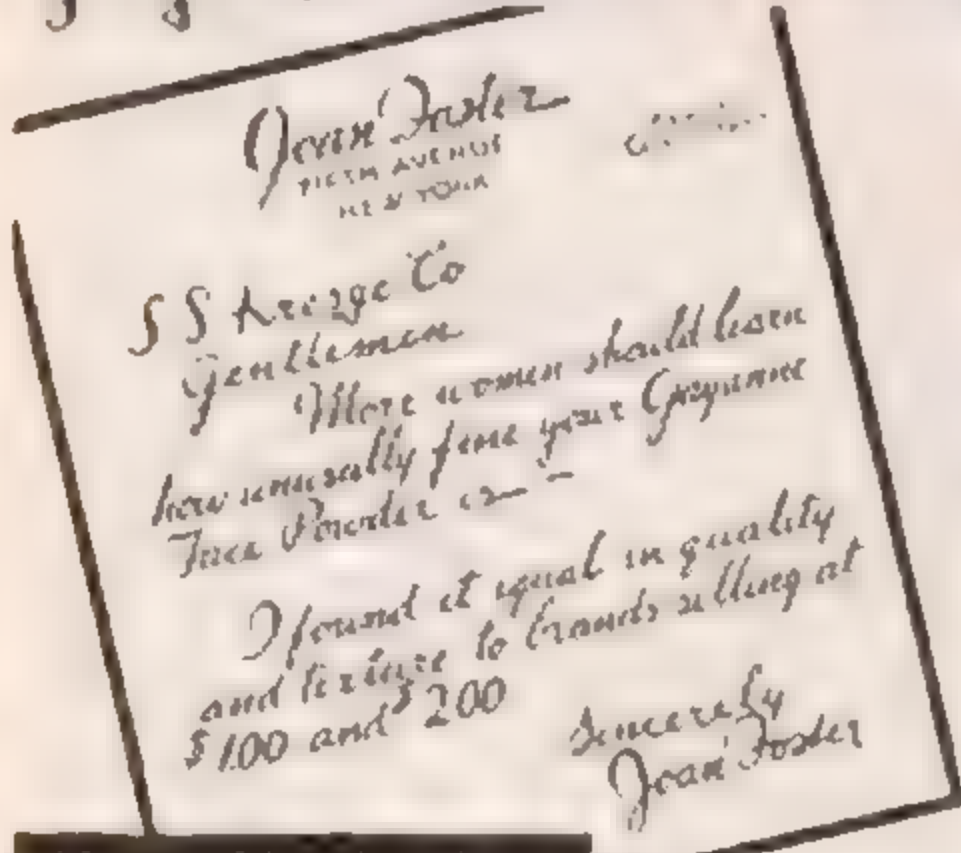 Joan Foster
FIFTH AVENUE
NEW YORK
S S Kresge Co
Gentlemen
More women should learn
how unusally fine your
Face Powder is — –
I found it equal in quality
and texture to brands selling at
$1.00 and $2.00
Sincerely
Joan Foster